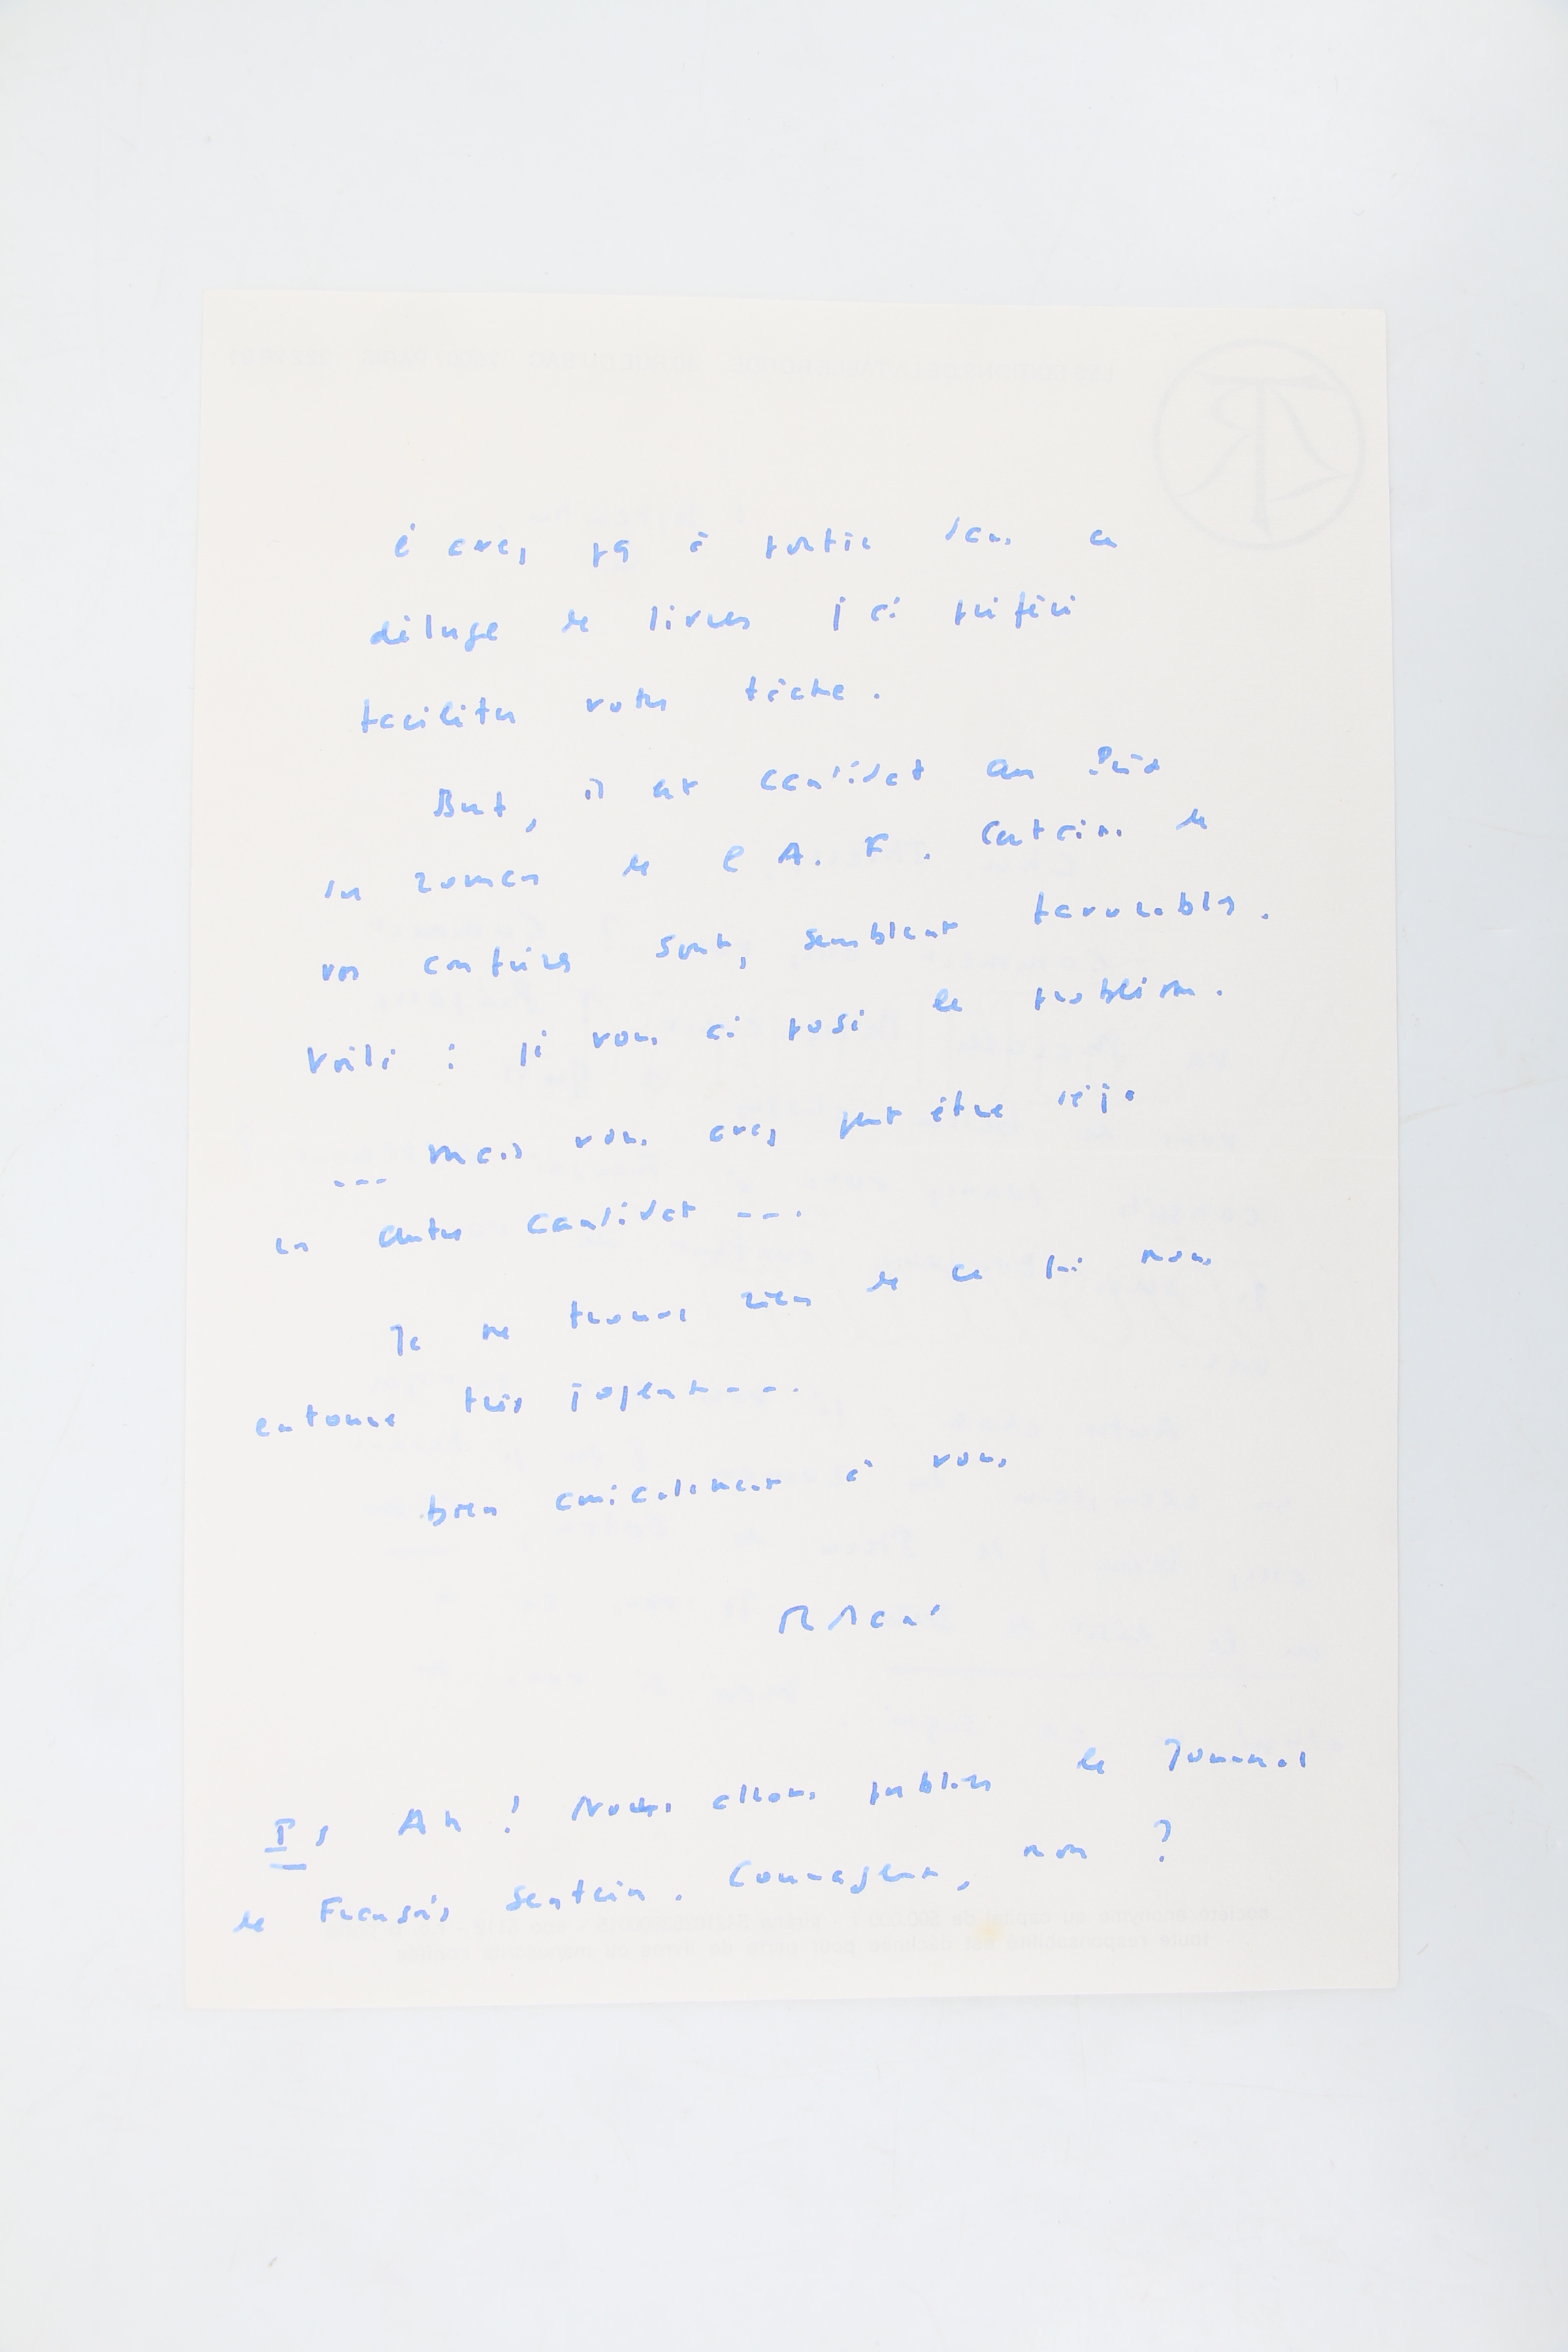 l'avez pas à portée dans ce
déluge de livres j'ai préféré
faciliter votre tâche.
But, il est candidat au Prix
du roman de l'A. F. Certains de
vos confrères sont, semblent favorables.
Voilà : je vous ai posé le problème.
--- Mais vous avez peut être déjà
un autre candidat ---.
Je ne trouve rien de ce qui nous
entoure très ragent ---.
bien amicalement à vous
Ps Ah ! Nous allons publier le Journal
de François Sentein. Courageux, non ?